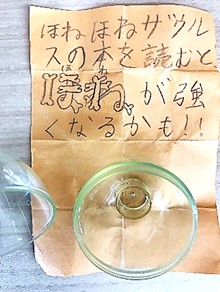 ほねほねザウル
スの本を読むと、
ほねが強
くなるかも!!